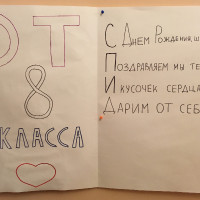 ОТ
8
КЛАССА
С Днем Рождения, ш
Поздравляем мы те
И кусочек сердца
Дарим от себ